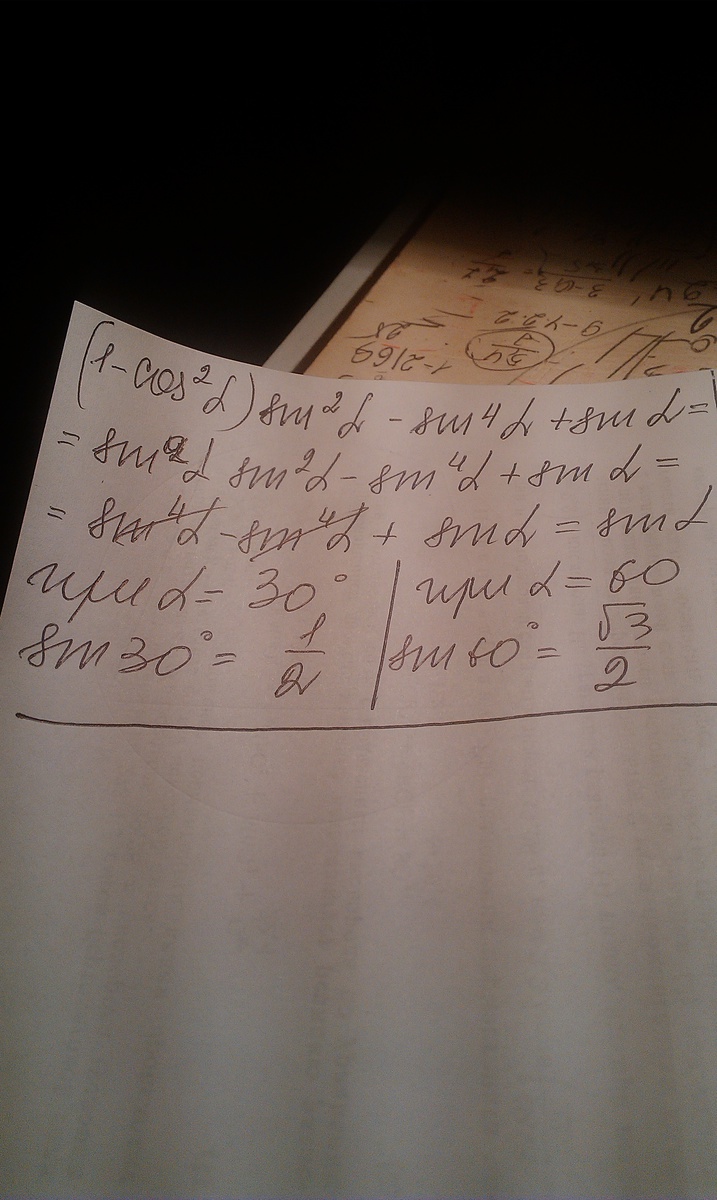 (1-cos²α)sin²α - sin⁴α + sin α =
= sin²α sin²α - sin⁴α + sin α =
= sin⁴α - sin⁴α + sin α = sin α
при α = 30° | при α = 60
sin 30° = 1/2 | sin 60° = √3/2